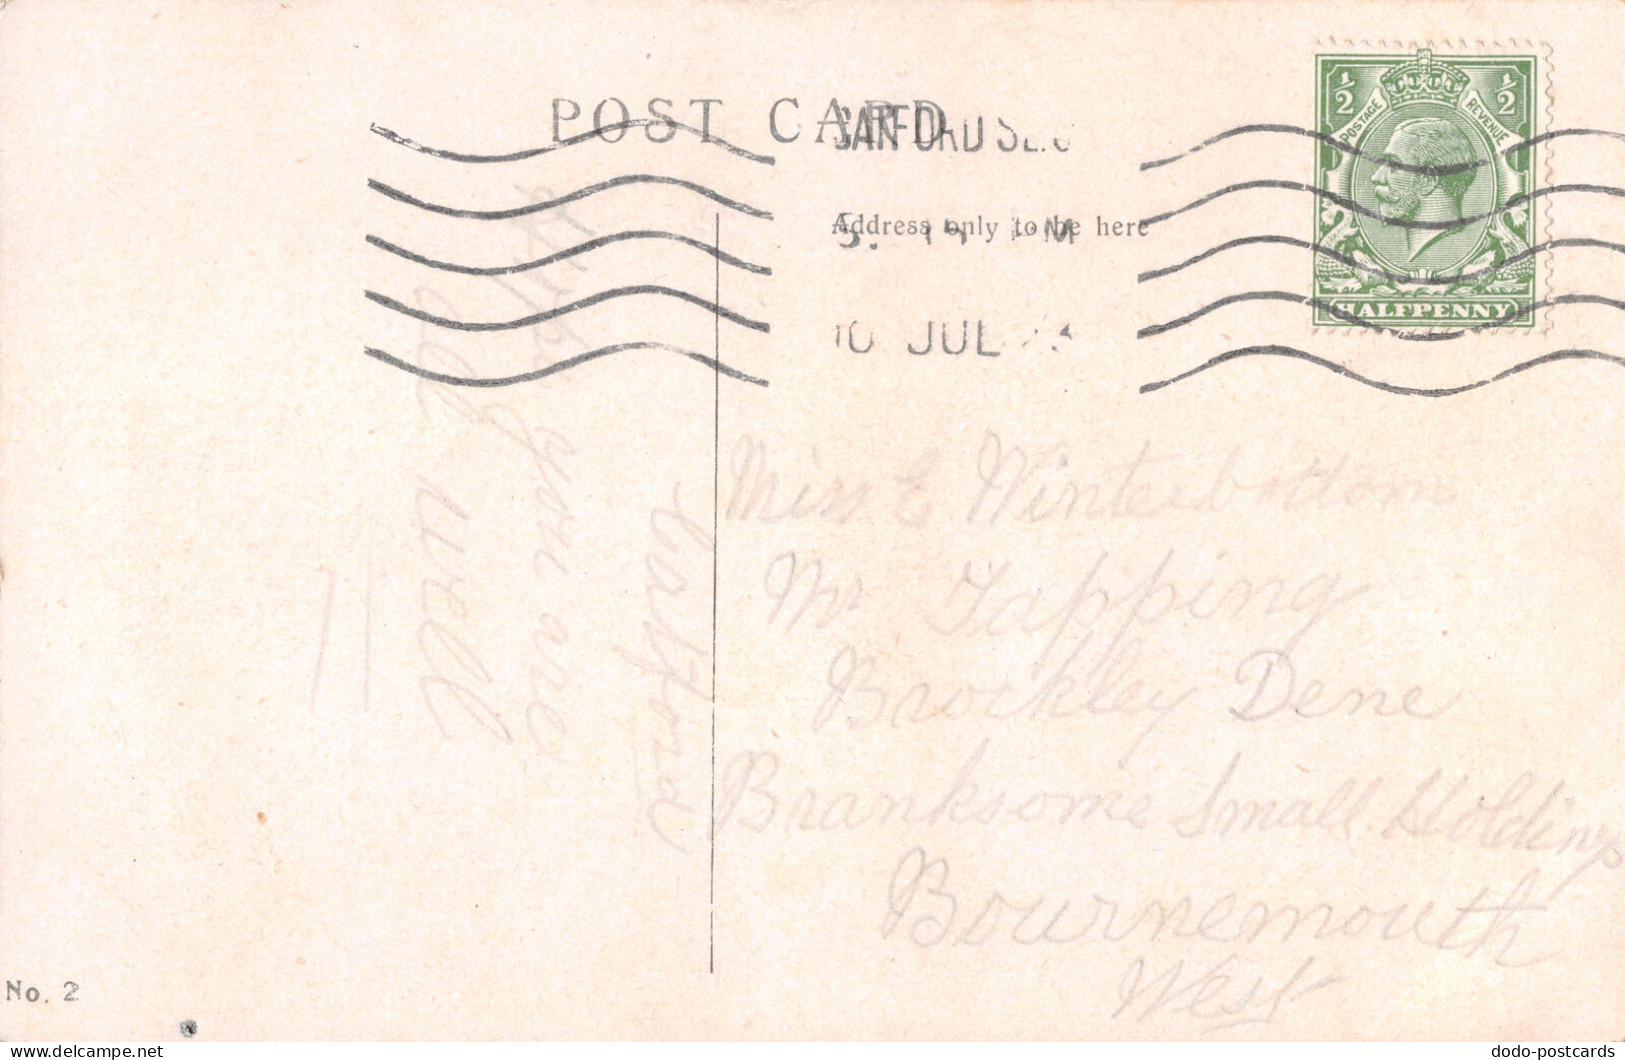 POST CARD
Address only to be here
10 JUL
½ ½
POSTAGE REVENUE
HALFPENNY
Hope you are
all well
Catford
Miss E Winterbottom
Mr Tapping
Brockley Dene
Branksome Small Holdings
Bournemouth
West
No. 2
delcampe.net
dodo-postcards